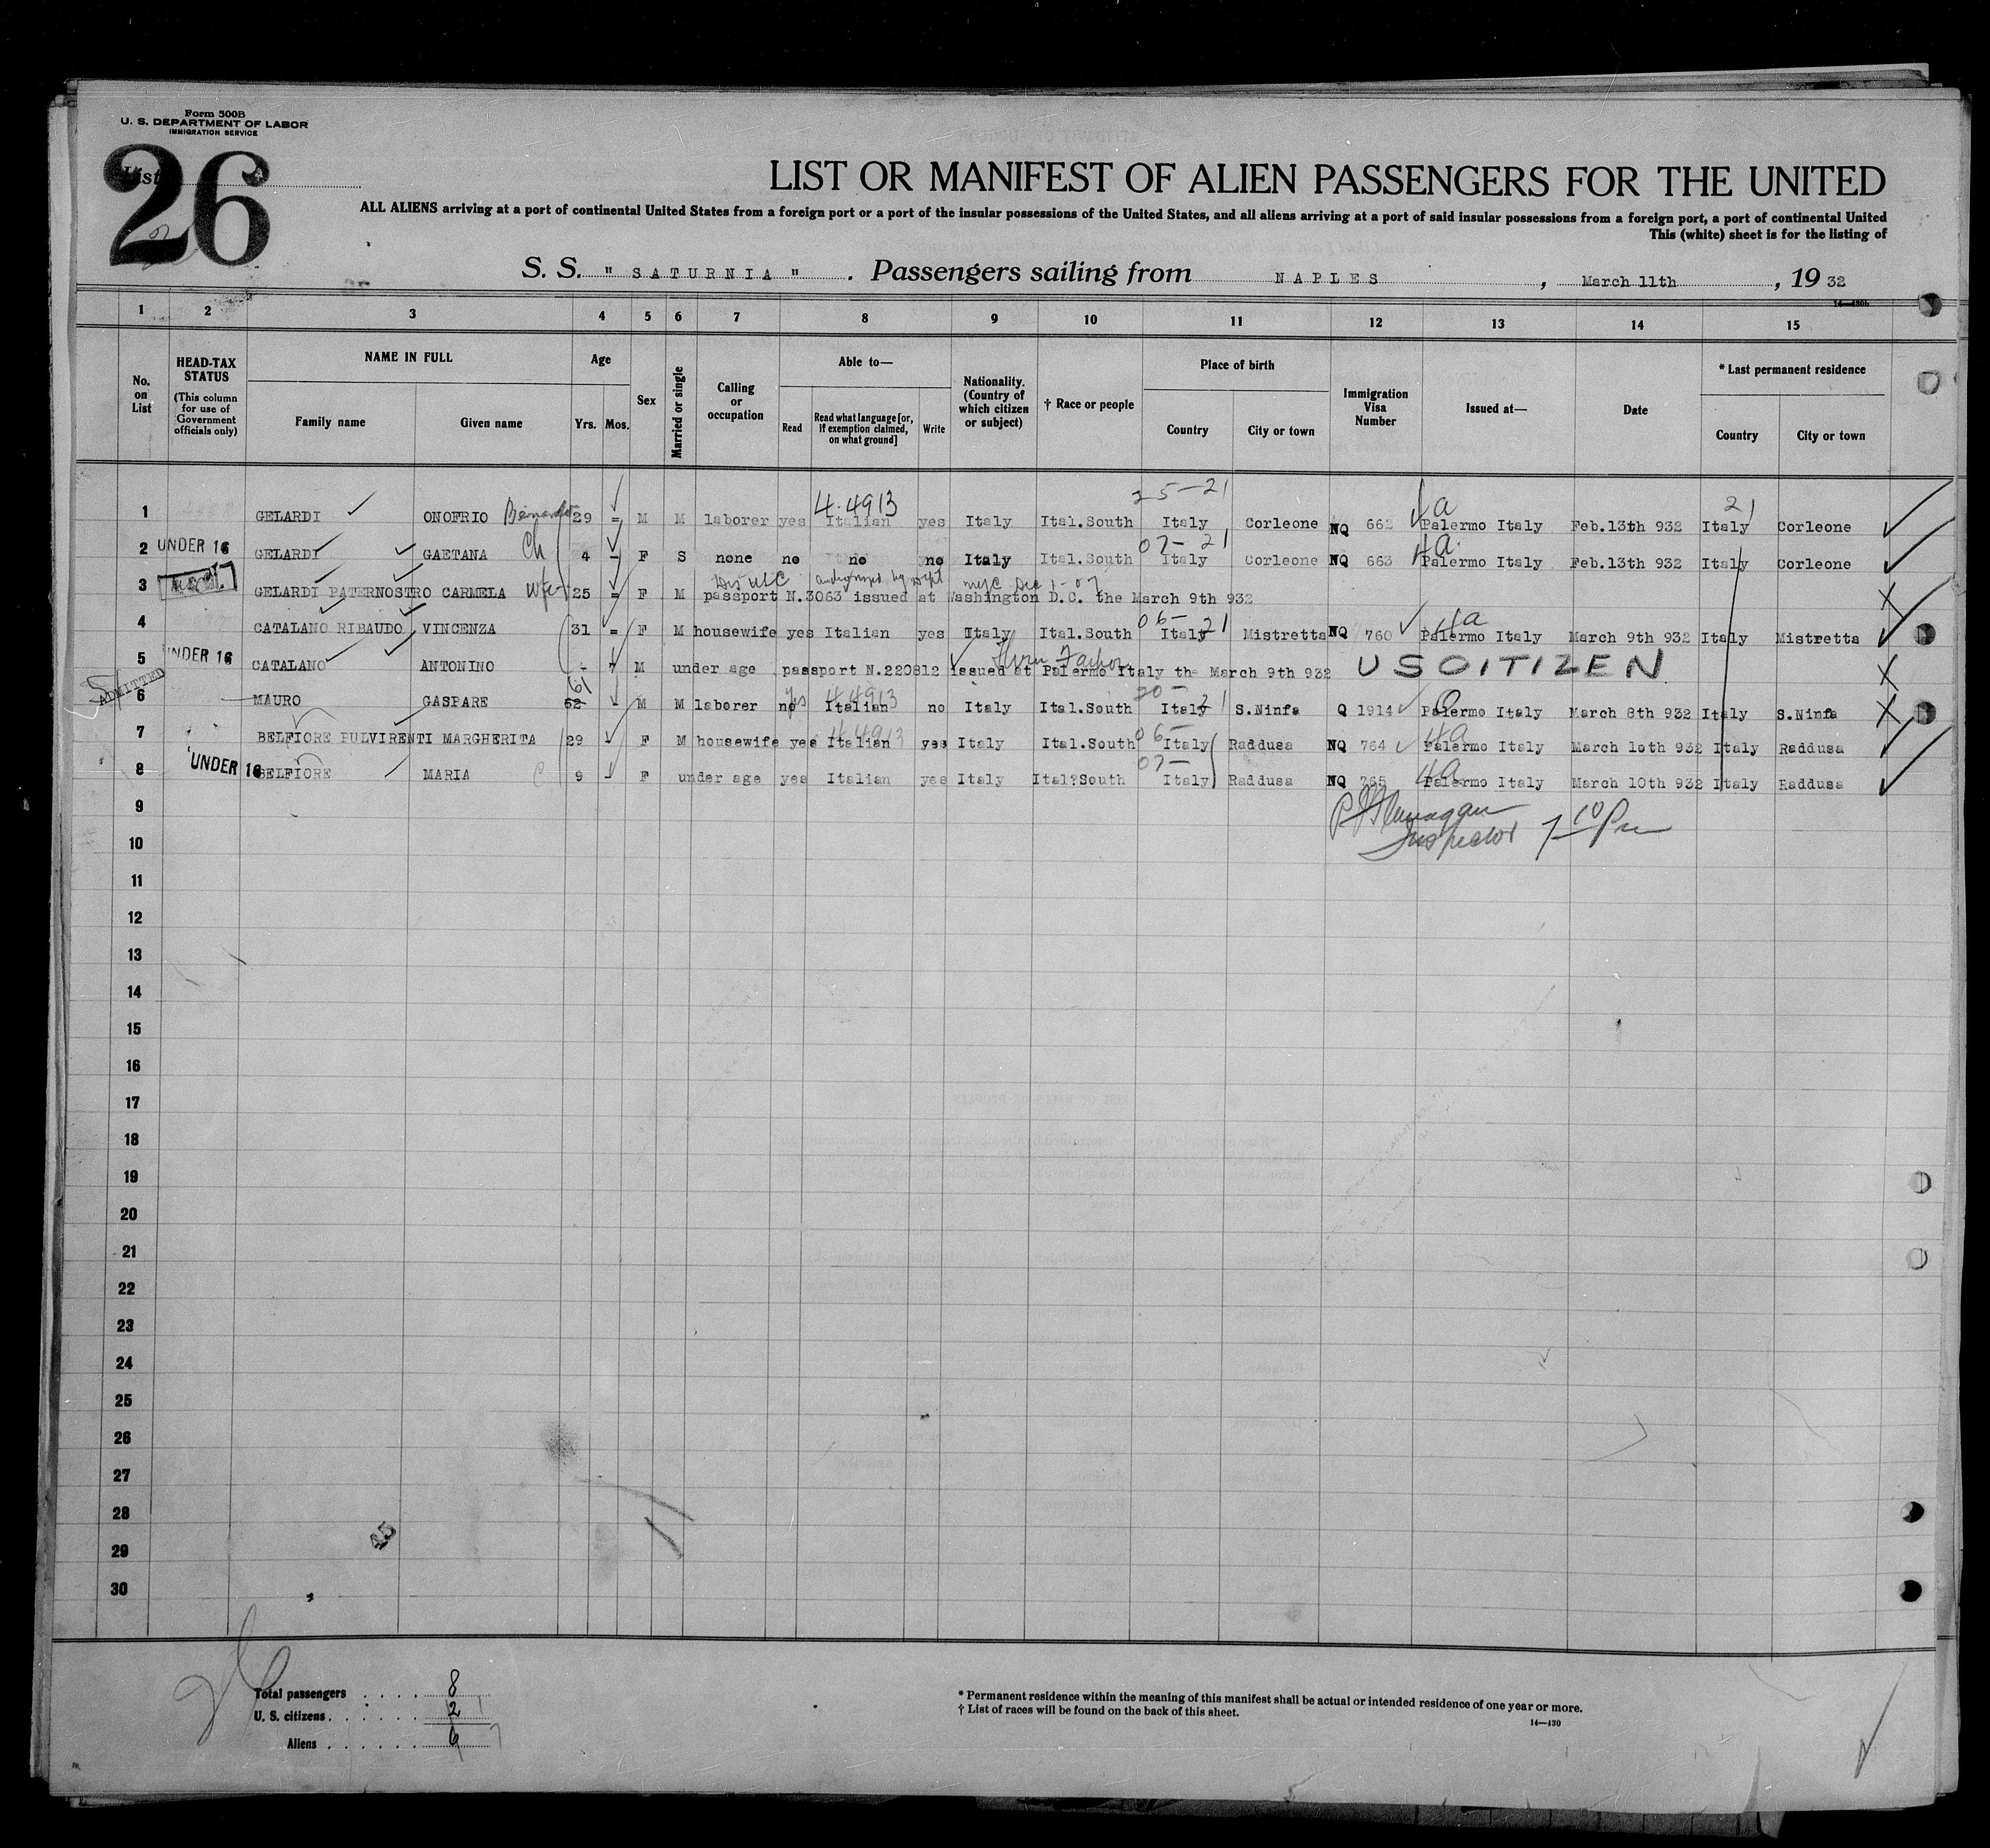 Form 500B
U. S. DEPARTMENT OF LABOR
IMMIGRATION SERVICE
List
26
LIST OR MANIFEST OF ALIEN PASSENGERS FOR THE UNITED
ALL ALIENS arriving at a port of continental United States from a foreign port or a port of the insular possessions of the United States, and all aliens arriving at a port of said insular possessions from a foreign port, a port of continental United
This (white) sheet is for the listing of
S. S. " SATURNIA " . Passengers sailing from NAPLES , March 11th , 19 32
14—430b
1 2 3 4 5 6 7 8 9 10 11 12 13 14 15
No. on List
HEAD-TAX STATUS (This column for use of Government officials only)
NAME IN FULL Family name Given name
Age Yrs. Mos.
Sex
Married or single
Calling or occupation
Able to— Read Read what language [or, if exemption claimed, on what ground] Write
Nationality. (Country of which citizen or subject)
† Race or people
Place of birth Country City or town
Immigration Visa Number
Issued at—
Date
* Last permanent residence Country City or town
4.4913 25-21 a 21
1 GELARDI ONOFRIO 29 = M M laborer yes Italian yes Italy Ital.South Italy Corleone NQ 662 Palermo Italy Feb.13th 932 Italy Corleone
07-21 4a
2 UNDER 16 GELARDI GAETANA Ch 4 - F S none no no no Italy Ital.South Italy Corleone NQ 663 Palermo Italy Feb.13th 932 Italy Corleone
3 GELARDI PATERNOSTRO CARMELA Wfe 25 = F M passport N.3063 issued at Washington D.C. the March 9th 932
06-21 4a
4 CATALANO RIBAUDO VINCENZA 31 = F M housewife yes Italian yes Italy Ital.South Italy Mistretta NQ 760 Palermo Italy March 9th 932 Italy Mistretta
5 UNDER 16 CATALANO ANTONINO - M under age passport N.220812 issued at Palermo Italy the March 9th 932 U S CITIZEN
ADMITTED 61 yes 4.4913 20-21
6 MAURO GASPARE 52 - M M laborer no Italian no Italy Ital.South Italy S.Ninfa Q 1914 Palermo Italy March 8th 932 Italy S.Ninfa
4.4913 06- 4a
7 BELFIORE PULVIRENTI MARGHERITA 29 F M housewife yes Italian yes Italy Ital.South Italy Raddusa NQ 764 Palermo Italy March 10th 932 Italy Raddusa
07- 4a
8 UNDER 16 BELFIORE MARIA C 9 - F under age yes Italian yes Italy Ital?South Italy Raddusa NQ 765 Palermo Italy March 10th 932 Italy Raddusa
9
Inspector 7 10 Pm
10
11
12
13
14
15
16
17
18
19
20
21
22
23
24
25
26
27
28
29
30
45
Total passengers . . . . 8
U. S. citizens . . . . . . 2 1
Aliens . . . . . . 6 7
* Permanent residence within the meaning of this manifest shall be actual or intended residence of one year or more.
† List of races will be found on the back of this sheet.
14—430